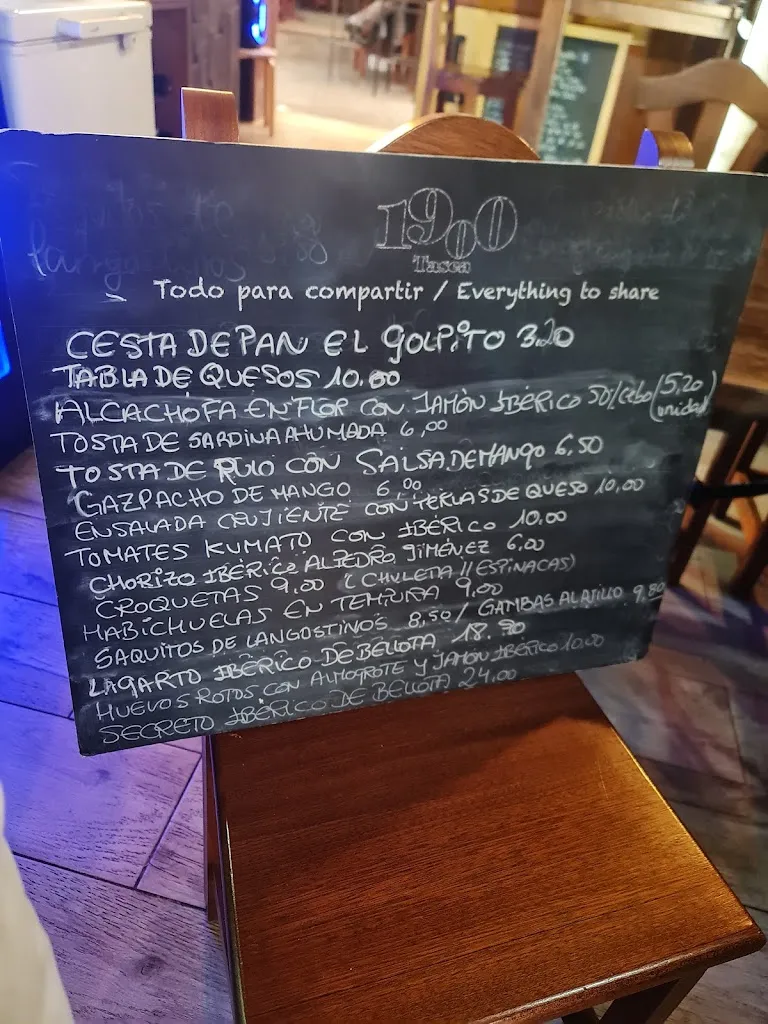 1900
Tasca
Todo para compartir / Everything to share
CESTA DE PAN EL GOLPITO 3.20
TABLA DE QUESOS 10.00
ALCACHOFA EN FLOR CON JAMÓN IBÉRICO 50% cebo (5,20 unidad)
TOSTA DE SARDINA AHUMADA 6,00
TOSTA DE PULPO CON SALSA DE MANGO 6,50
GAZPACHO DE MANGO 6,00
ENSALADA CRUJIENTE CON PERLAS DE QUESO 10,00
TOMATES KUMATO CON IBÉRICO 10.00
CHORIZO IBÉRICO AL PEDRO JIMÉNEZ 6,00
CROQUETAS 9,00 (CHULETA // ESPINACAS)
HABICHUELAS EN TEMPURA 9,00
SAQUITOS DE LANGOSTINOS 8,50 / GAMBAS AL AJILLO 9,80
LAGARTO IBÉRICO DE BELLOTA 18.90
HUEVOS ROTOS CON ALMOGROTE Y JAMÓN IBÉRICO 10.00
SECRETO IBÉRICO DE BELLOTA 24.00